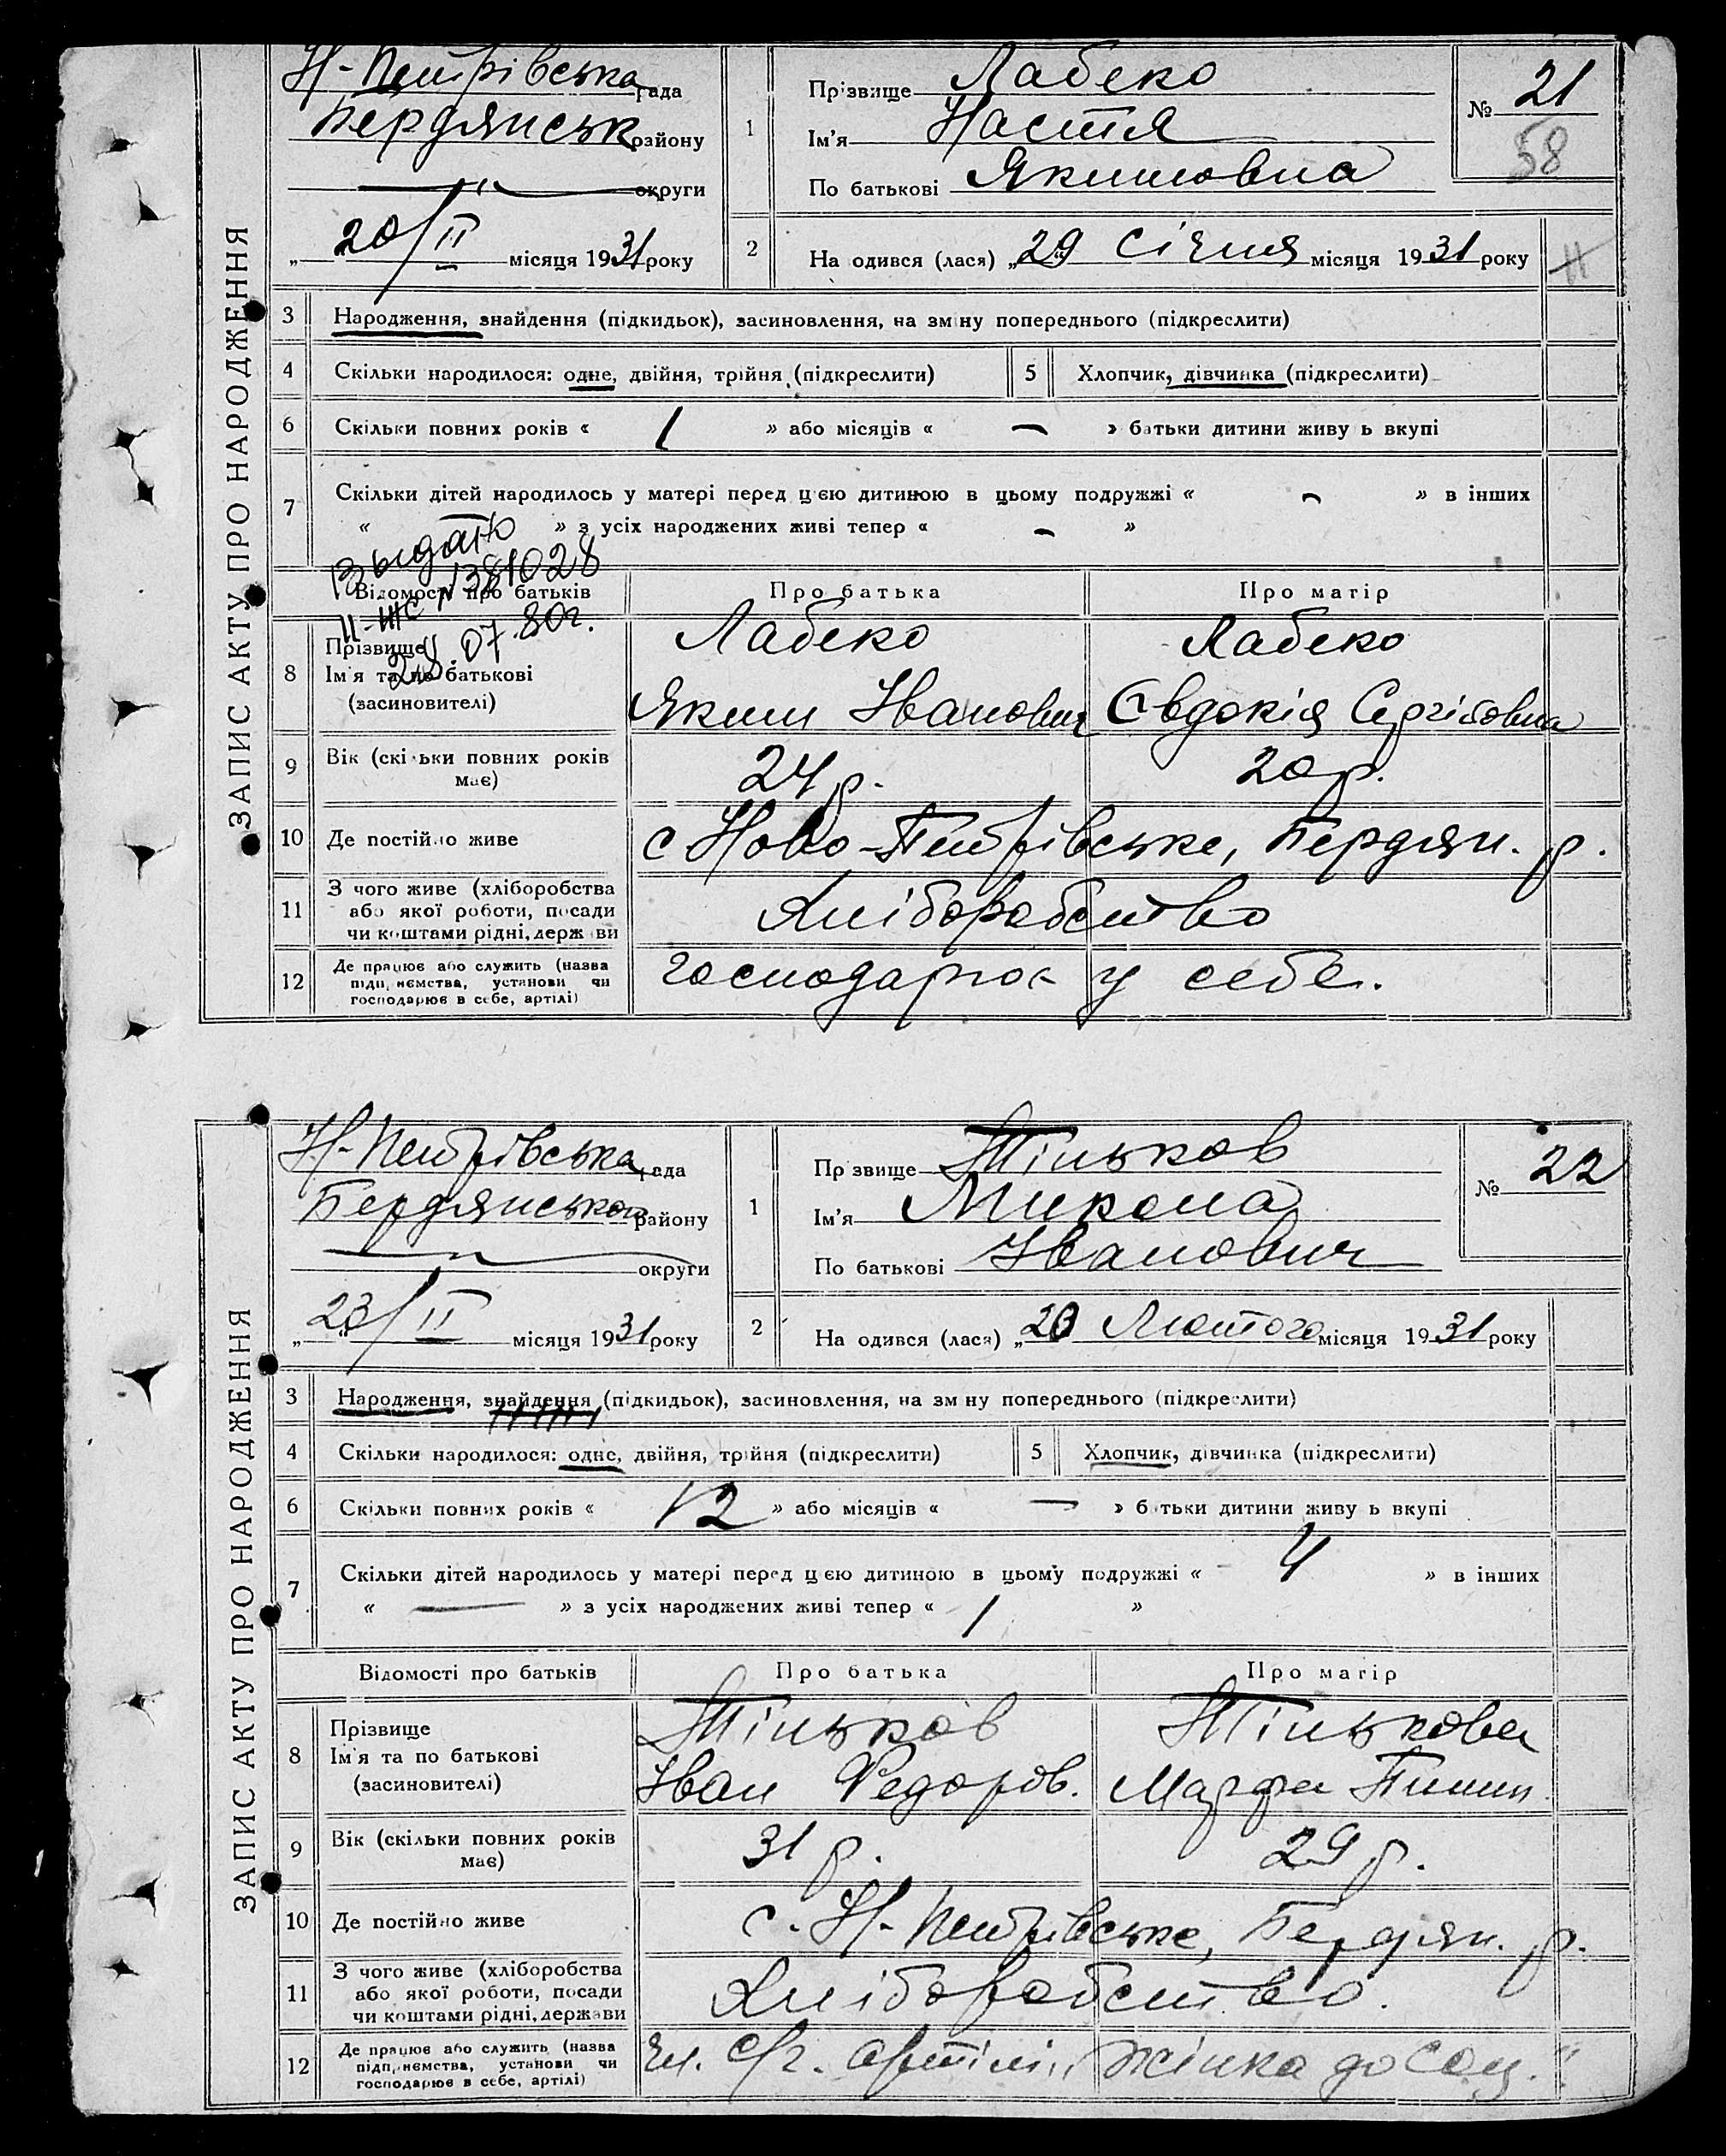 ЗАПИС АКТУ ПРО НАРОДЖЕННЯ
Н-Петрівська рада
Бердянськ району
округи
„20/II місяця 1931 року
1 Прізвище Лабеко
Ім'я Настя
По батькові Якимовна
№ 21
58
2 На одився (лася) „29 січня місяця 1931 року
3 Народження, знайдення (підкидьок), засиновлення, на зм ну попереднього (підкреслити)
4 Скільки народилося: одне, двійня, трійня (підкреслити)
5 Хлопчик, дівчинка (підкреслити)
6 Скільки повних років « 1 » або місяців « — » батьки дитини живу ь вкупі
7 Скільки дітей народилось у матері перед цією дитиною в цьому подружжі « - » в інших
« — » з усіх народжених живі тепер « - »
Выдано
II-ЖС № 381028
28.07.80г.
Відомості про батьків Про батька Про матір
8 Прізвище Лабеко Лабеко
Ім'я та по батькові Яким Іванович Євдокія Сергіївна
(засиновителі)
9 Вік (скі ьки повних років має) 24 р. 20 р.
10 Де постійно живе с Ново-Петрівське, Бердян. р.
11 З чого живе (хліборобства
або якої роботи, посади
чи коштами рідні, держ ви Хліборобство
12 Де працює або служить (назва
підприємства, установи чи
господарює в себе, артілі) господарює у себе.
ЗАПИС АКТУ ПРО НАРОДЖЕННЯ
Н-Петрівська рада
Бердянського району
округи
„23/II місяця 1931 року
1 Пр звище Тіньков
Ім'я Микола
По батькові Іванович
№ 22
2 На одився (лася) „20 Лютого місяця 1931 року
3 Народження, знайдення (підкидьок), засиновлення, на зм ну попереднього (підкреслити)
4 Скільки народилося: одне, двійня, трійня (підкреслити)
5 Хлопчик, дівчинка (підкреслити)
6 Скільки повних років « 12 » або місяців « — » б тьки дитини живу ь вкупі
7 Скільки дітей народилось у матері перед цією дитиною в цьому подружжі « 4 » в інших
« — » з усіх народжених живі тепер « 1 »
Відомості про батьків Про батька Про матір
8 Прізвище Тіньков Тінькова
Ім'я та по батькові Іван Федоров. Марфа
(засиновителі)
9 Вік (скільки повних років має) 31 р. 29 р.
10 Де постійно живе с. Н-Петрівське, Бердян. р.
11 З чого живе (хліборобства
або якої роботи, посади
чи коштами рідні, держави Хліборобство.
12 Де працює або служить (назва
підприємства, установи чи
господарює в себе, артілі) Чл. С/г. артілі „Жінка до Соц."